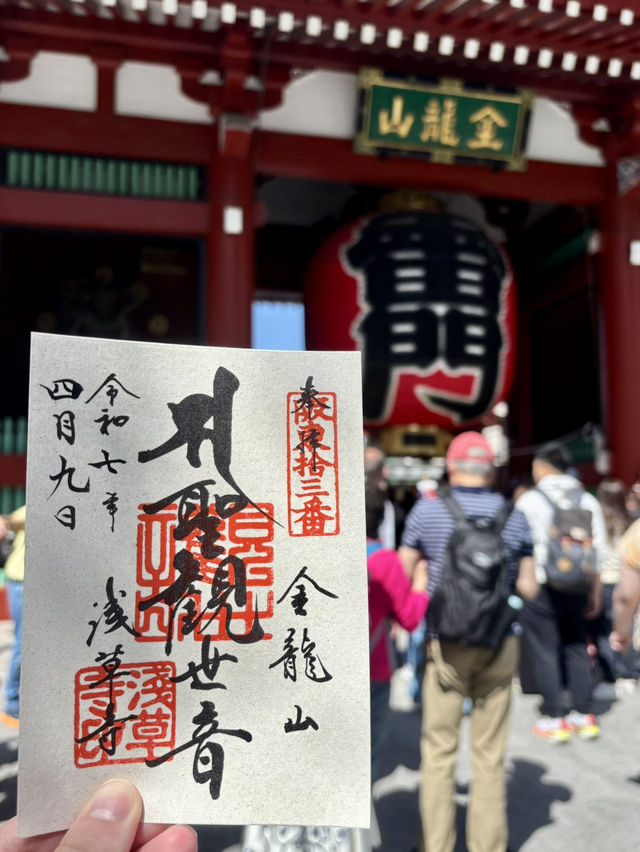 金龍山
雷門
奉拝
坂東拾三番
金龍山
聖観世音
令和七年
四月九日
浅草寺
淺草